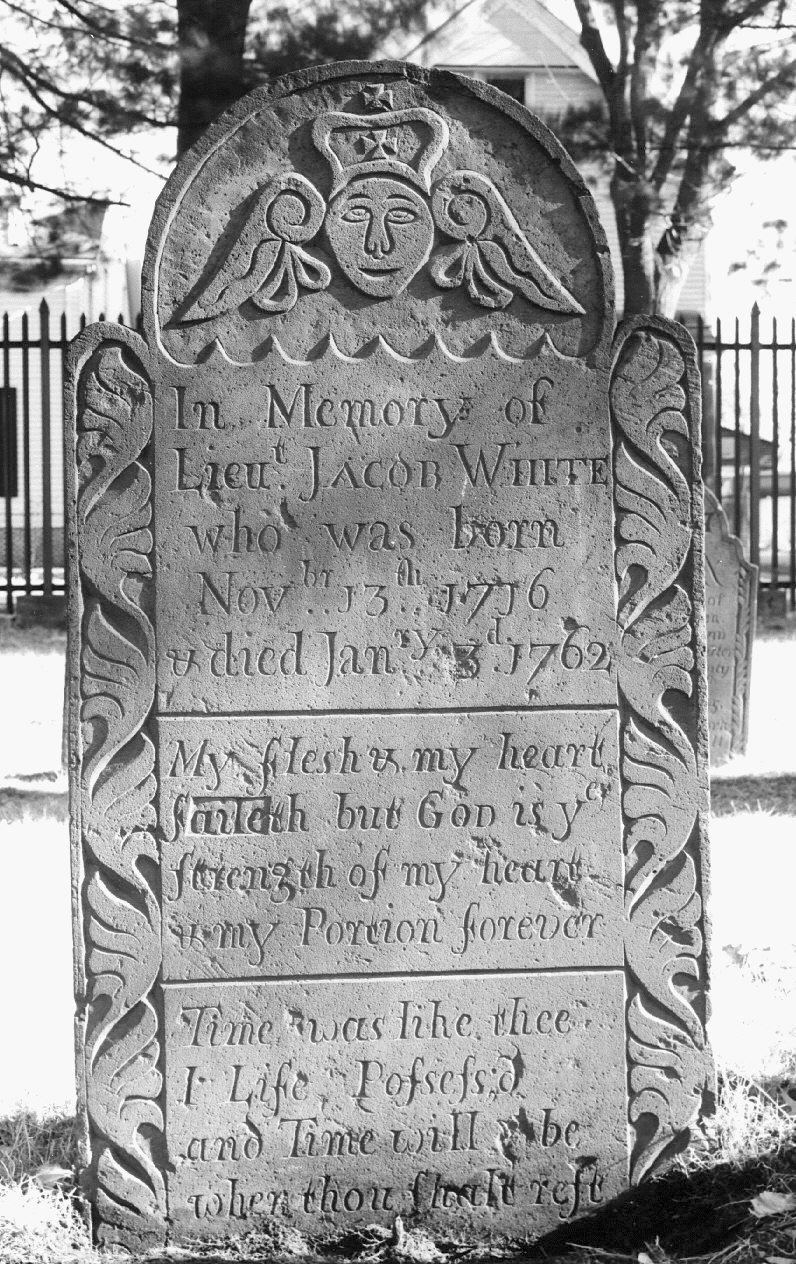 In Memory of
Lieu.t JACOB WHITE
who was born
Nov.br 13.th 1716
& died Jan.ry 3d 1762
My flesh & my heart
faileth but GOD is ye
ſtrength of my heart
& my Portion forever
Time was like thee
I Life Poſseſs;d
and Time will be
when thou ſhalt reſt